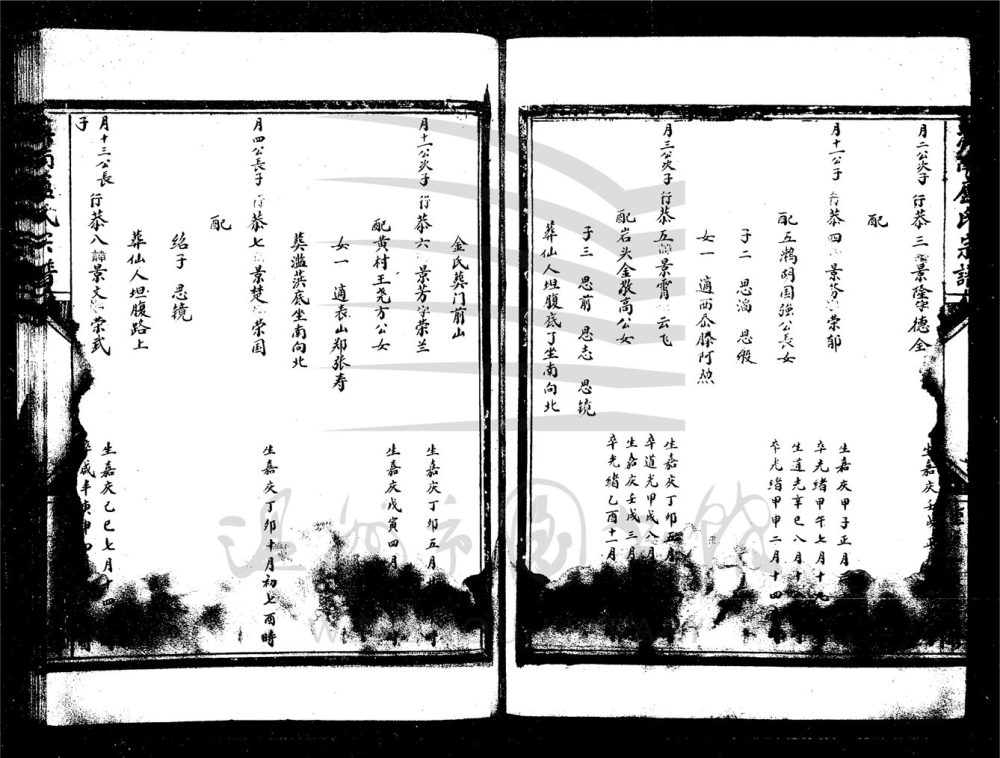 月二公次子 行恭三 景隆字德全
生嘉庆
配
月十一公子 行恭四 景芬字荣郁
生嘉庆甲子正月
卒光緒甲午七月十九
配五鹅胡国強公長女
生道光辛巳八月十
卒光緒甲申二月十四
子二 思滔 思锻
女一 適西岙滕阿
月三公次子 行恭五 諱景霄 云飞
生嘉庆丁卯五月
卒道光甲戌八月
配岩头金敬高公女
生嘉庆壬戌三月
卒光緒乙酉十一月
子三 思前 思志 思镜
葬仙人坦腹底丁坐南向北
金氏葬门前山
月十一公次子 行恭六 景芳字荣兰
生嘉庆丁卯五月
配黄村王尧方公女
生嘉庆戊寅四月
女一 適表山郑张寿
葬滥茓底坐南向北
月四公長子 行恭七 景楚 荣国
生嘉庆丁卯十月初七酉時
配
绍子 思镜
葬仙人坦腹路上
月十三公長子 行恭八諱景文字荣武
生嘉庆乙巳七月
卒咸丰庚申四
温州市图书馆